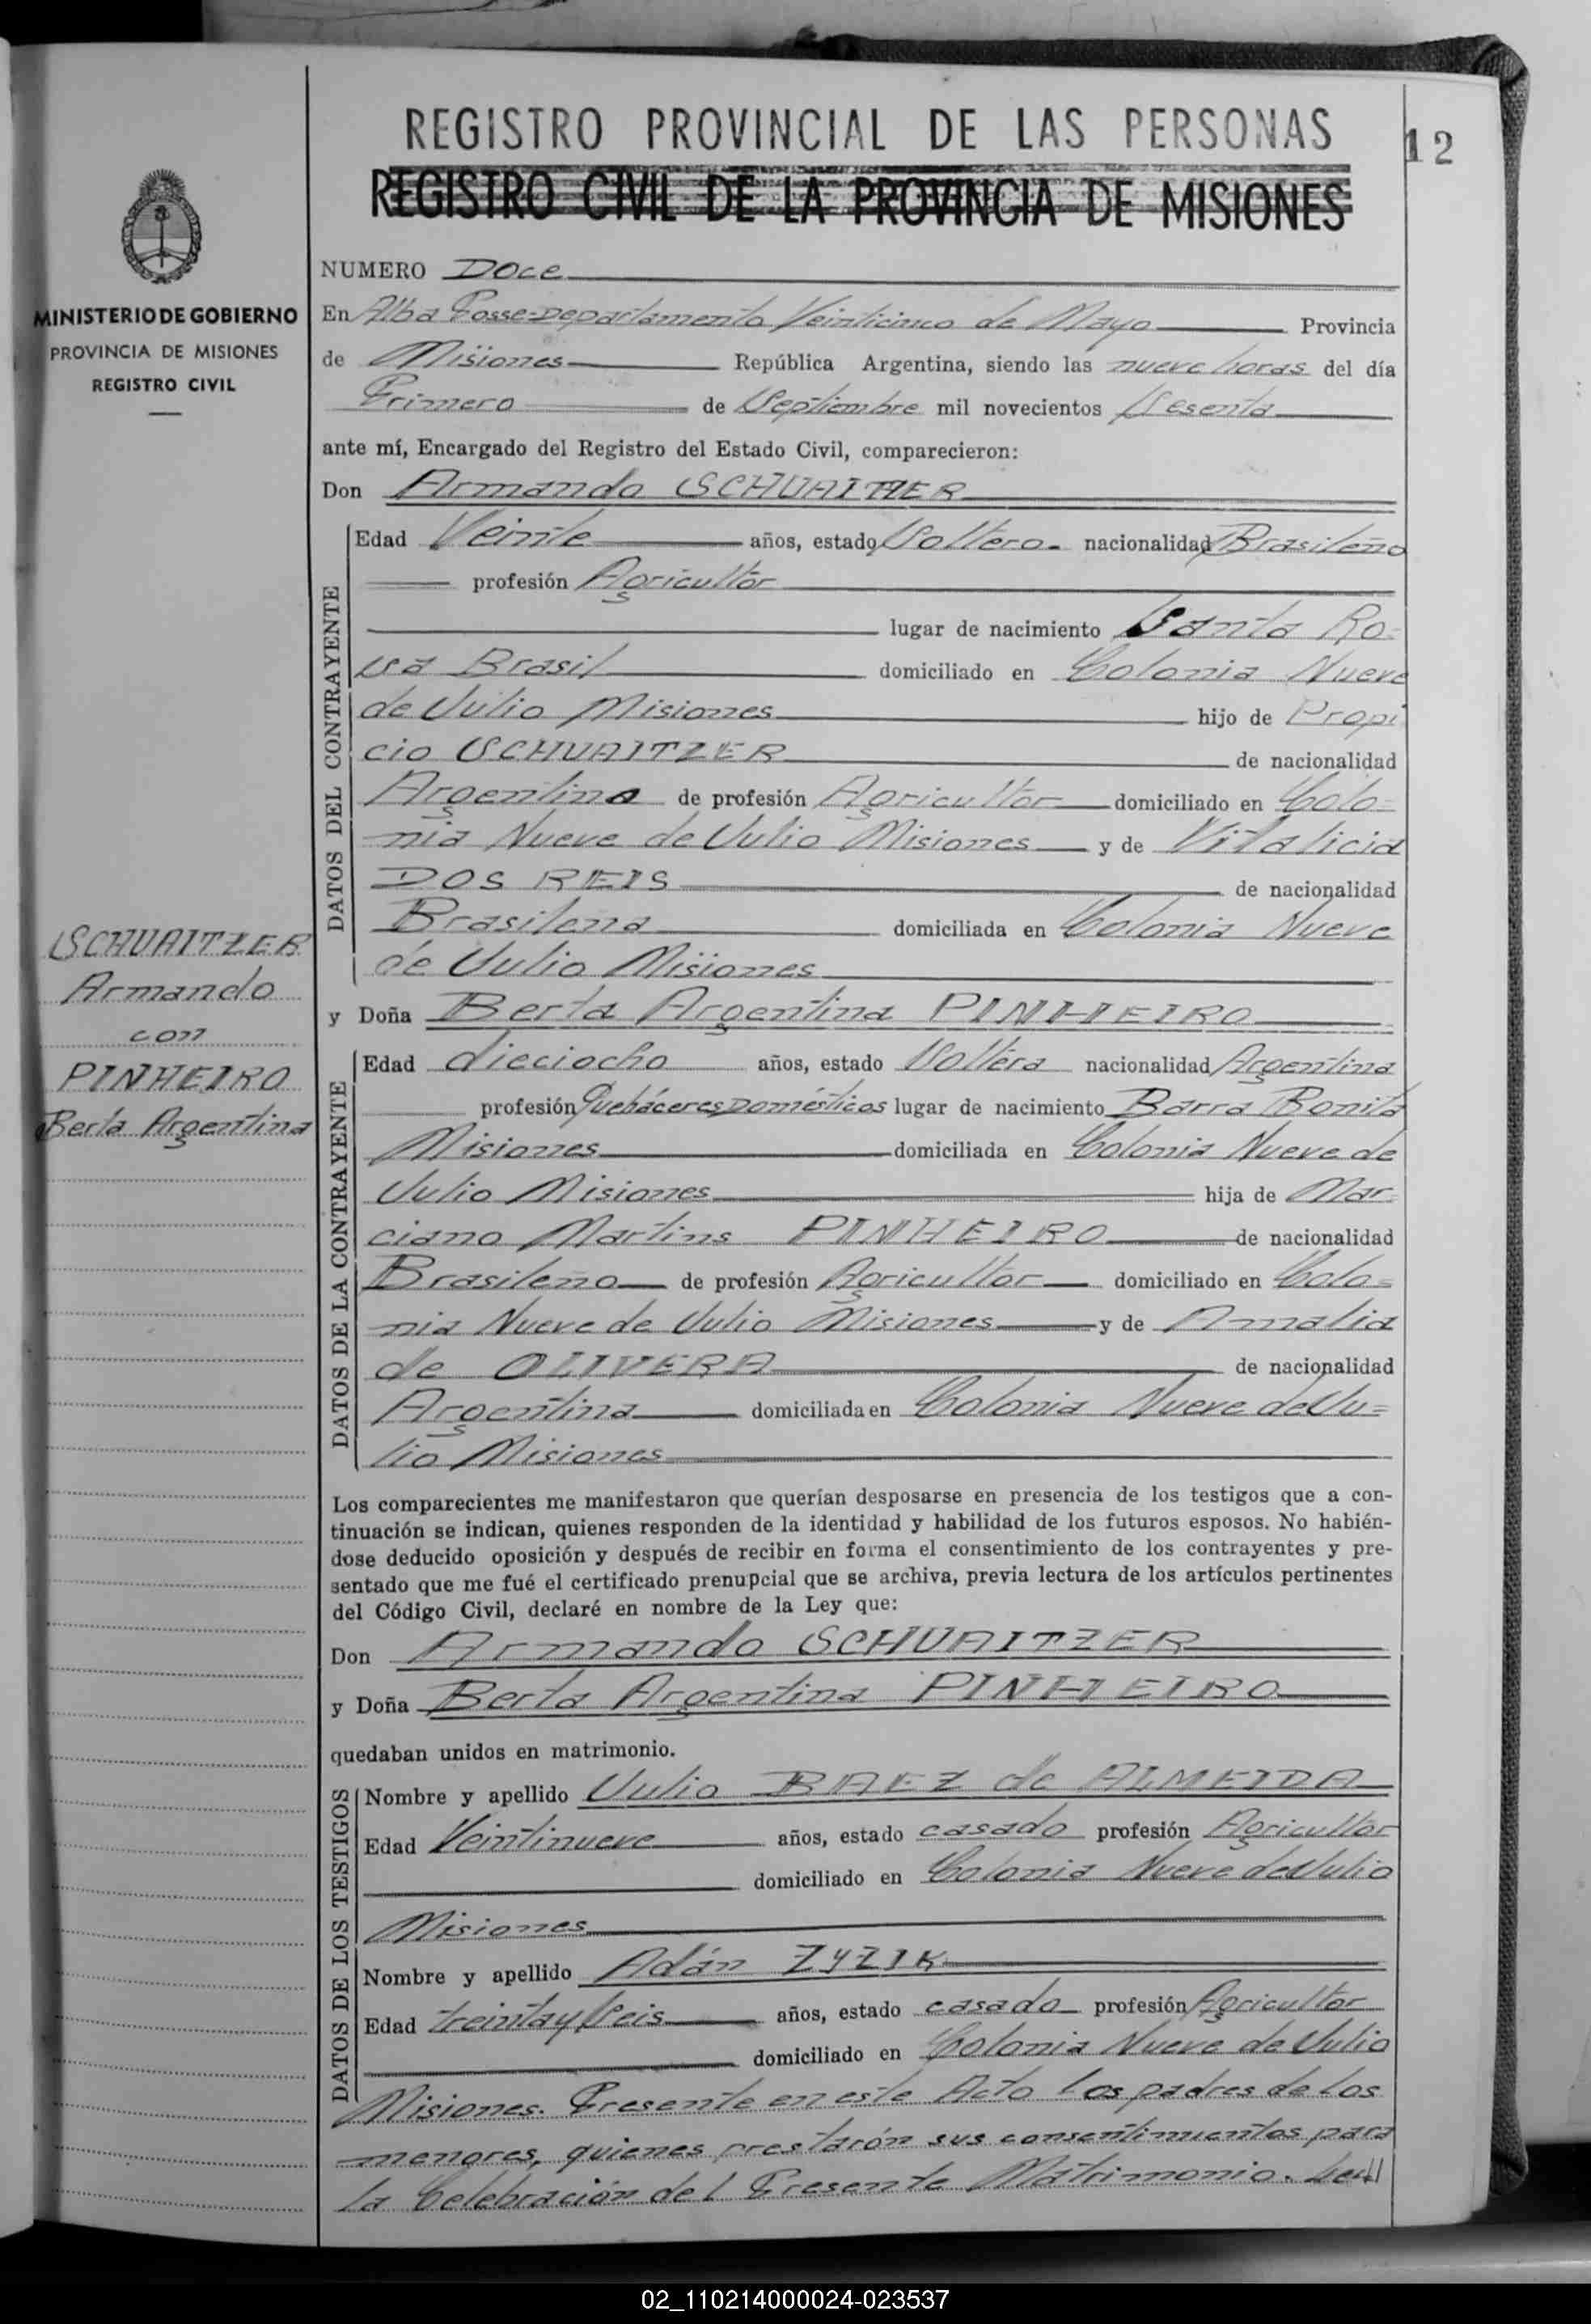 REGISTRO PROVINCIAL DE LAS PERSONAS
12
REGISTRO CIVIL DE LA PROVINCIA DE MISIONES
MINISTERIO DE GOBIERNO
PROVINCIA DE MISIONES
REGISTRO CIVIL
SCHUAITZER
Armando
con
PINHEIRO
Berta Argentina
NUMERO Doce
En Alba Posse-Departamento Veinticinco de Mayo Provincia
de Misiones República Argentina, siendo las nueve horas del día
Primero de Septiembre mil novecientos Sesenta
ante mí, Encargado del Registro del Estado Civil, comparecieron:
Don Armando SCHUAITZER
DATOS DEL CONTRAYENTE
Edad Veinte años, estado Soltero. nacionalidad Brasileño
profesión Agricultor
lugar de nacimiento Santa Ro-
sa Brasil domiciliado en Colonia Nueve
de Julio Misiones hijo de Propi
cio SCHUAITZER de nacionalidad
Argentino de profesión Agricultor domiciliado en Colo-
nia Nueve de Julio Misiones y de Vitalicia
DOS REIS de nacionalidad
Brasileña domiciliada en Colonia Nueve
de Julio Misiones
y Doña Berta Argentina PINHEIRO
DATOS DE LA CONTRAYENTE
Edad dieciocho años, estado Soltera nacionalidad Argentina
profesión Quehaceres Domésticos lugar de nacimiento Barra Bonita
Misiones domiciliada en Colonia Nueve de
Julio Misiones hija de Mar
ciano Martins PINHEIRO de nacionalidad
Brasileño de profesión Agricultor domiciliado en Colo=
nia Nueve de Julio Misiones y de Amalia
de OLIVERA de nacionalidad
Argentina domiciliada en Colonia Nueve de Ju=
lio Misiones
Los comparecientes me manifestaron que querían desposarse en presencia de los testigos que a con-
tinuación se indican, quienes responden de la identidad y habilidad de los futuros esposos. No habién-
dose deducido oposición y después de recibir en forma el consentimiento de los contrayentes y pre-
sentado que me fué el certificado prenupcial que se archiva, previa lectura de los artículos pertinentes
del Código Civil, declaré en nombre de la Ley que:
Don Armando SCHUAITZER
y Doña Berta Argentina PINHEIRO
quedaban unidos en matrimonio.
DATOS DE LOS TESTIGOS
Nombre y apellido Julio BAEZ de ALMEIDA
Edad Veintinueve años, estado casado profesión Agricultor
domiciliado en Colonia Nueve de Julio
Misiones
Nombre y apellido Adán ZYZIK
Edad treinta y Seis años, estado casado profesión Agricultor
domiciliado en Colonia Nueve de Julio
Misiones. Presente en este Acto los padres de los
menores, quienes prestarón sus consentimientos para
la Celebración del Presente Matrimonio.
02_110214000024-023537